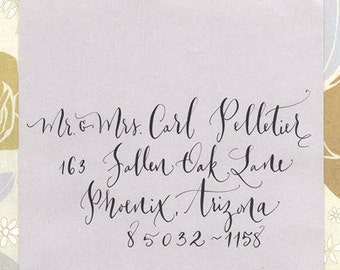 Mr. & Mrs. Carl Pelletier
163 Fallen Oak Lane
Phoenix, Arizona
85032~1158